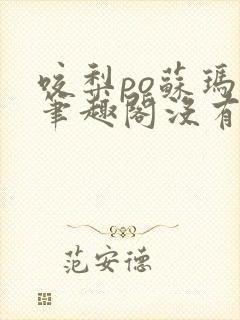 咬梨po蘇瑪
筆趣閣沒有
范安德